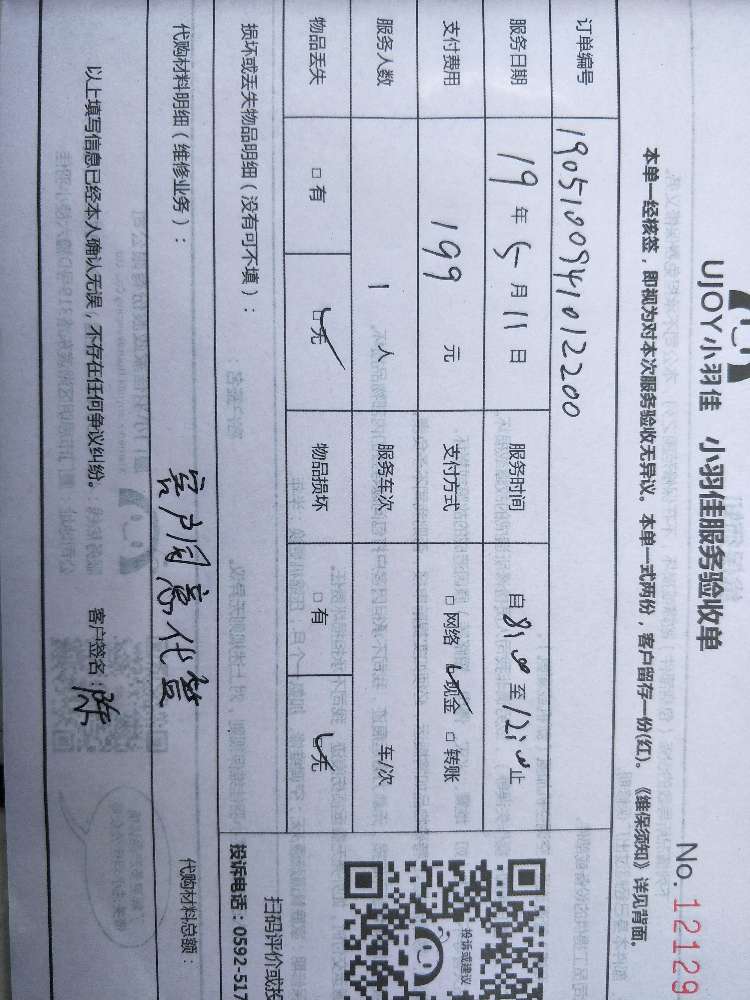 UJOY小羽佳 小羽佳服务验收单
No. 12129
本单一经核签，即视为对本次服务验收无异议。本单一式两份，客户留存一份(红)。《维保须知》详见背面。
订单编号 1905100941012200
服务日期 19 年 5 月 11 日 服务时间 自 8:00 至 12:00 止
支付费用 199 元 支付方式 □ 网络 □ 现金 □ 转账
服务人数 1 人 服务车次 车/次
物品丢失 □ 有 □ 无 物品损坏 □ 有 □ 无
投诉或建议
扫码评价或投
损坏或丢失物品明细（没有可不填）：
投诉电话：0592-517
代购材料明细（维修业务）： 代购材料总额：
客户同意代签
以上填写信息已经本人确认无误，不存在任何争议纠纷。 客户签名：陈